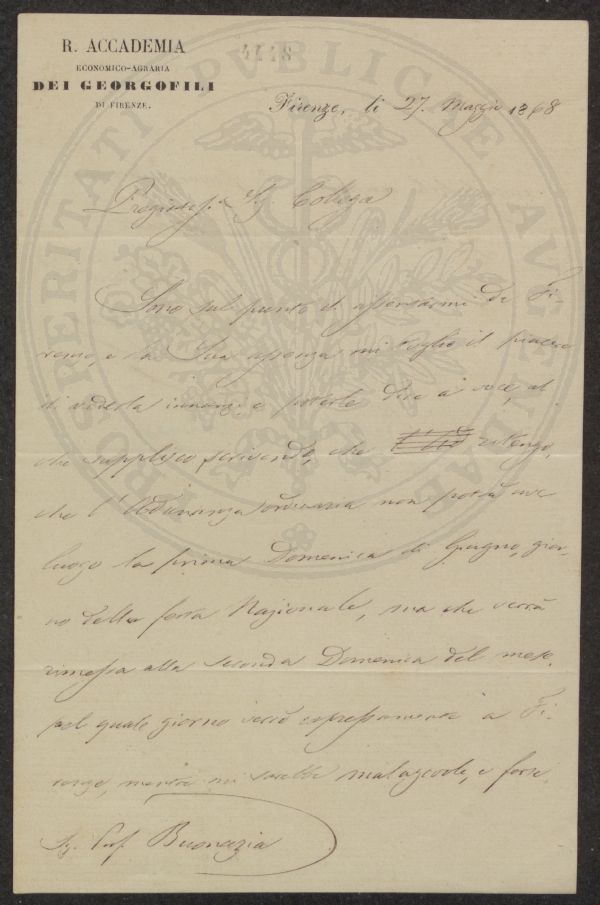 R. ACCADEMIA
ECONOMICO-AGRARIA
DEI GEORGOFILI
DI FIRENZE.
4118
Firenze, li 27. Maggio 1868
Pregiatess.º Sig Collega
Sono sul punto di assentarmi da Fi-
renze, e la Sua assenza mi toglie il piacere
di vederla innanzi e poterle dire a voce, al
che supplisco scrivendo, che ritengo,
che l'Adunanza ordinaria non potrà aver
luogo la prima Domenica di Giugno, gior-
no della festa Nazionale, ma che verrà
rimessa alla seconda Domenica del mese,
pel quale giorno verrò espressamente a Fi-
renze, mentre mi sarebbe malagevole, e forse
Sig. Prof. Buonazia
PROSPERITATI PVBLICAE AVGENDAE